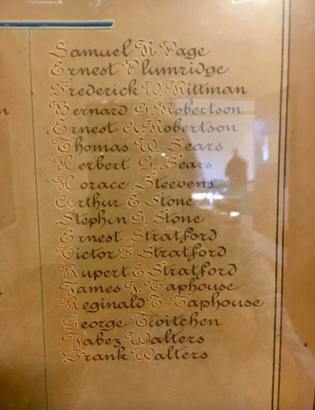 Samuel N. Page
Ernest Plumridge
Frederick W Rittman
Bernard G. Robertson
Ernest Robertson
Thomas W. Sears
Herbert G. Sears
Horace Steevens
Arthur E. Stone
Stephen G. Stone
Ernest Stratford
Victor Stratford
Rupert E Stratford
James Taphouse
Reginald T. Taphouse
George Twitchen
Jabez Walters
Frank Walters